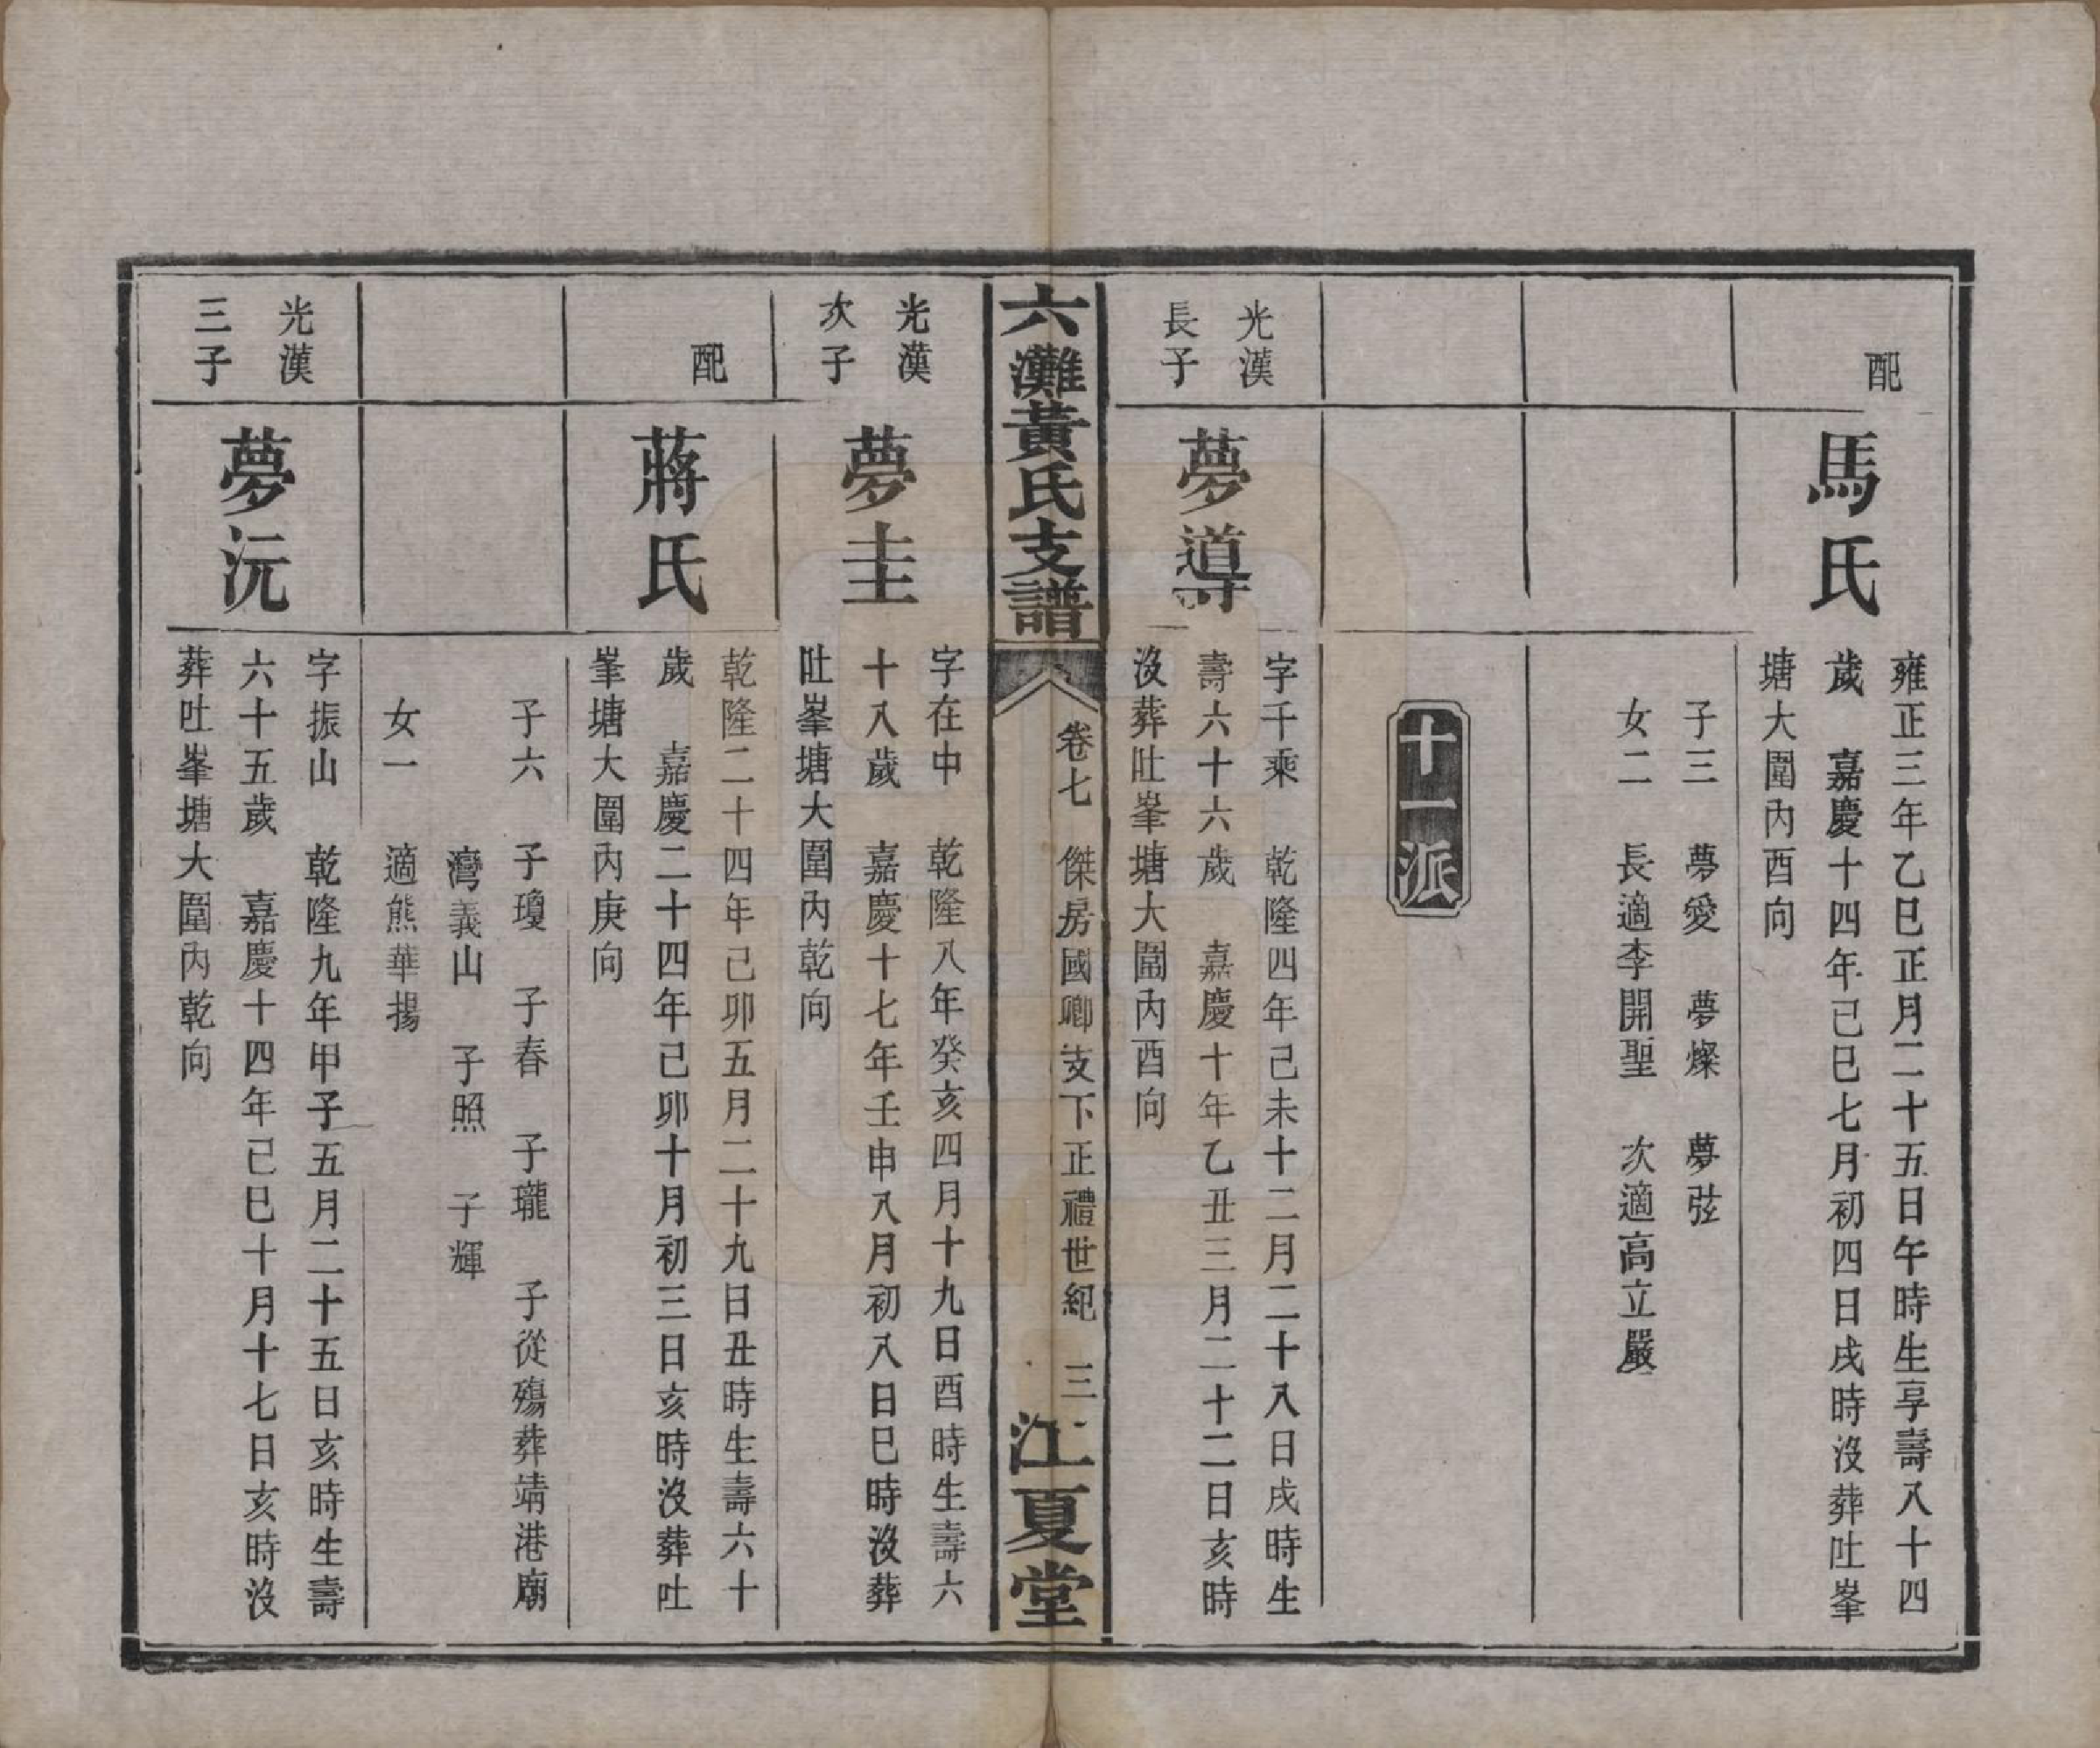 配
馬氏
雍正三年乙巳正月二十五日午時生享壽八十四
歲　嘉慶十四年己巳七月初四日戌時沒葬吐峯
塘大圍內酉向
子三　夢愛　夢燦　夢弦
女二　長適李開聖　次適高立嚴
十一派
光漢
長子
夢導
字千乘　乾隆四年己未十二月二十八日戌時生
壽六十六歲　嘉慶十年乙丑三月二十二日亥時
沒葬吐峯塘大圍內酉向
六灘黃氏支譜
卷七　傑房國卿支下正禮世紀　三
江夏堂
光漢
次子
夢圭
字在中　乾隆八年癸亥四月十九日酉時生壽六
十八歲　嘉慶十七年壬申八月初八日巳時沒葬
吐峯塘大圍內乾向
配
蔣氏
乾隆二十四年己卯五月二十九日丑時生壽六十
歲　嘉慶二十四年己卯十月初三日亥時沒葬吐
峯塘大圍內庚向
子六　子瓊　子春　子瓏　子從殤葬靖港廟
灣義山　子照　子輝
女一　適熊華揚
光漢
三子
夢沅
字振山　乾隆九年甲子五月二十五日亥時生壽
六十五歲　嘉慶十四年己巳十月十七日亥時沒
葬吐峯塘大圍內乾向